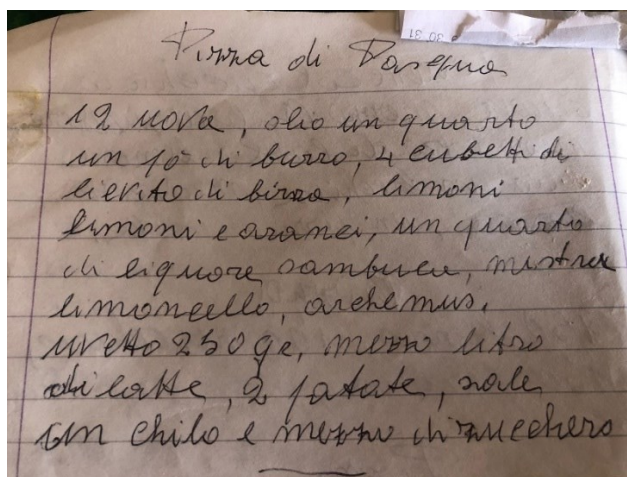 Pizza di Pasqua
12 uova, olio un quarto
un pò di burro, 4 cubetti di
lievito di birra, limoni
limoni e aranci, un quarto
di liquore sambuca, mistra
limoncello, archemus.
uvetto 250 ge, mezzo litro
di latte, 2 patate, sale
un chilo e mezzo di zucchero